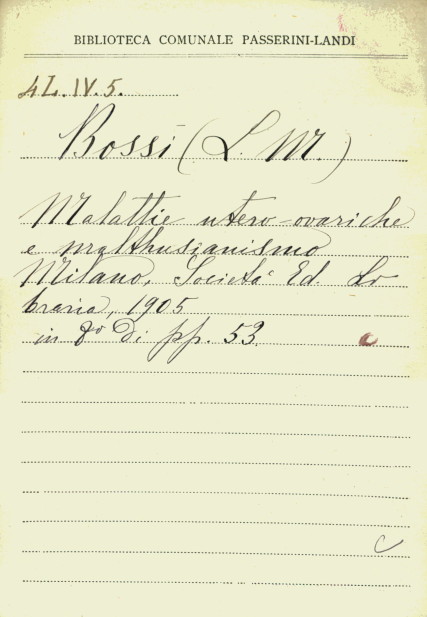 BIBLIOTECA COMUNALE PASSERINI-LANDI
4L.IV.5.
Bossi (L. M.)
Malattie utero-ovariche
e malthusianismo
Milano, Società Ed. Li
braria, 1905
in 8º di pp. 53.
c